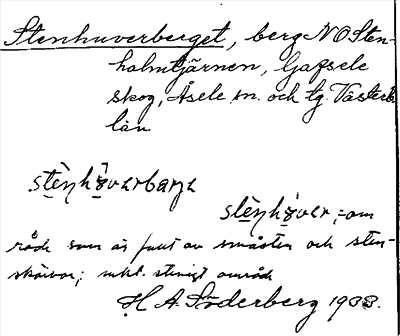 Stenhuverberget, berg NO Sten-
holmtjärnen, Gafsele
skog, Åsele sn. och tg. Västerb.
län
råde som är fullt av småsten och sten-
skärvor; mkt. stenigt område
H. A. Söderberg 1938.